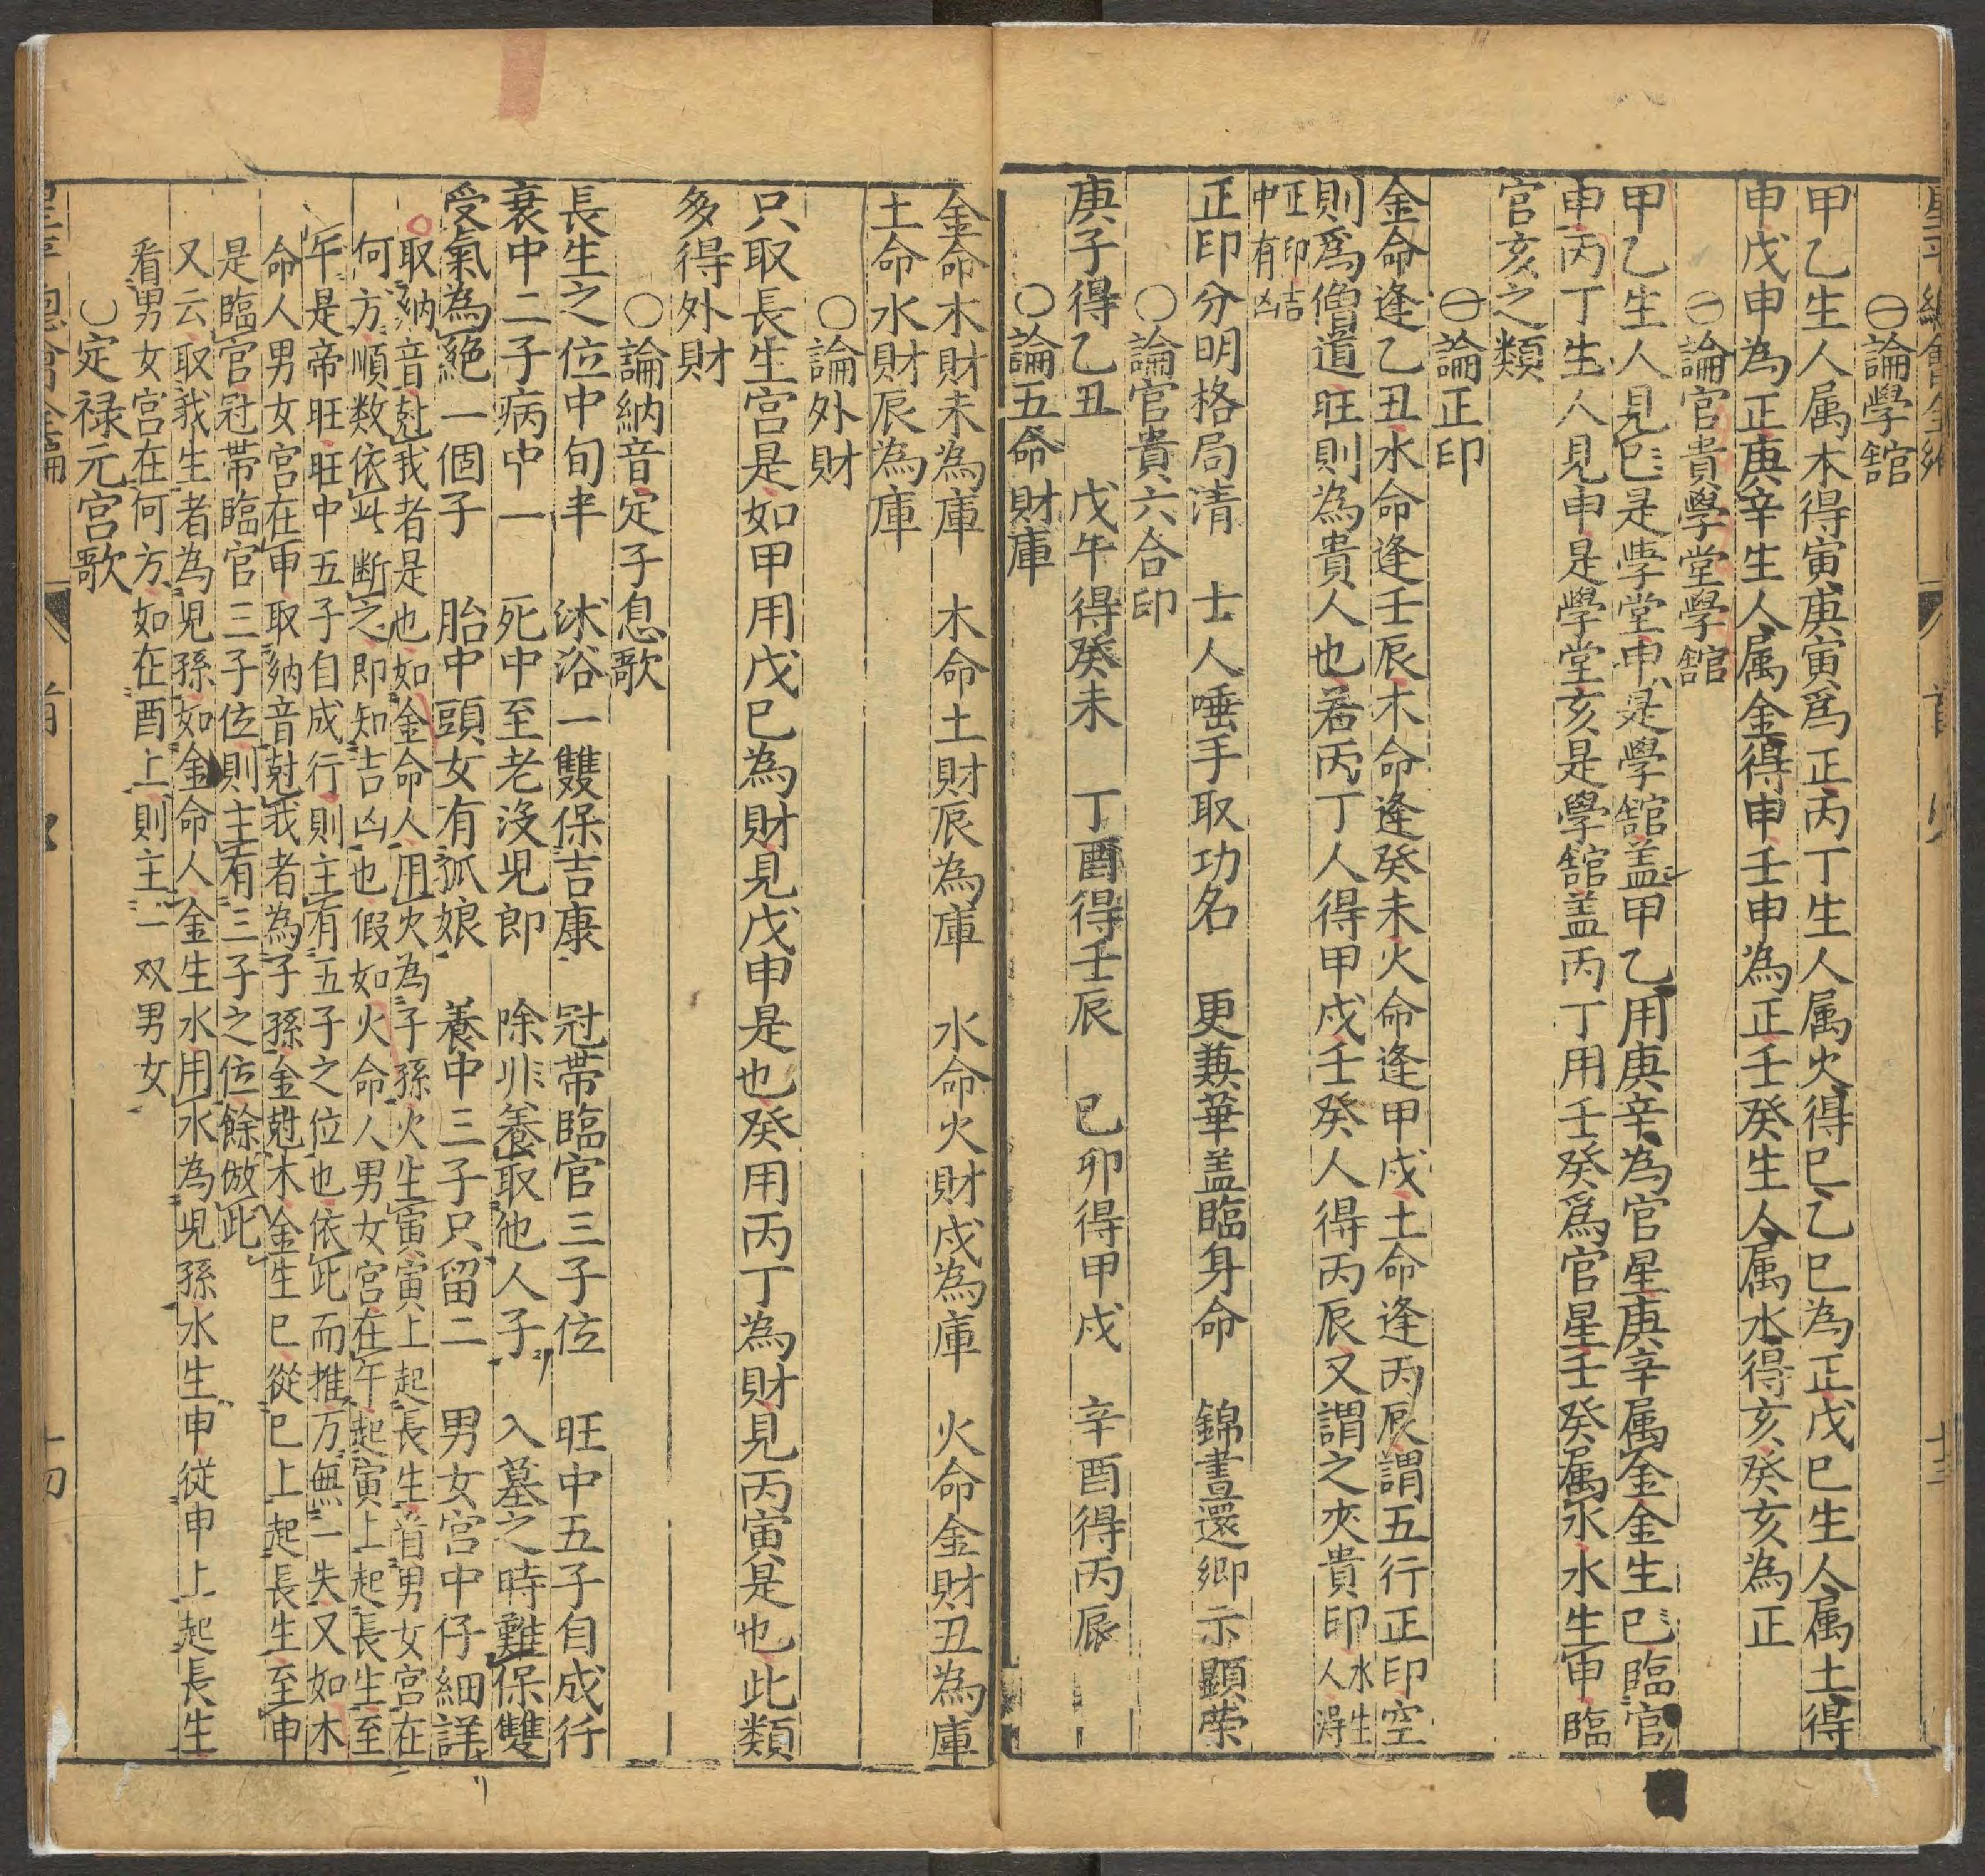 ㊀論學舘
甲乙生人属木得寅庚寅爲正丙丁生人属火得巳乙巳为正戊巳生人属土得
申戊申為正庚辛生人属金得申壬申為正壬癸生人属水得亥癸亥為正
㊀論官貴學堂學舘
甲乙生人見巳是學堂申是學舘盖甲乙用庚辛為官星庚辛属金金生巳臨官
申丙丁生人見申是學堂亥是學舘盖丙丁用壬癸爲官星壬癸属水水生申臨
官亥之類
㊀論正印
金命逢乙丑水命逢壬辰木命逢癸未火命逢甲戌土命逢丙辰謂五行正印空
則爲僧道旺則為貴人也若丙丁人得甲戌壬癸人得丙辰又謂之夾貴印水生人得
正印吉中有凶
正印分明格局清 士人唾手取功名 更蒹華盖臨身命 錦晝還卿示顯荣
○論官貴六合印
庚子得乙丑 戊午得癸未 丁酉得壬辰 巳卯得甲戌 辛酉得丙辰
○論五命財庫
金命木財未為庫 木命土財辰為庫 水命火財戌為庫 火命金財丑為庫
土命水財辰為庫
○論外財
只取長生宮是如甲用戊巳為財見戊申是也癸用丙丁為財見丙寅是也此類
多得外財
○論納音定子息歌
長生之位中旬半 沭浴一雙保吉康 冠帶臨官三子位 旺中五子自成行
衰中二子病中一 死中至老沒児郎 除非養取他人子 入墓之時難保雙
受氣為絕一個子 胎中頭女有孤娘 養中三子只留二 男女宮中仔細詳
取納音尅我者是也如金命人用火為子孫火生寅寅上起長生首男女宮在
何方順数依此断之即知吉凶也假如火命人男女宮在午起寅上起長生至
午是帝旺旺中五子自成行則主有五子之位也依此而推万無一失又如木
命人男女宮在申取納音尅我者為子孫金尅木金生巳從巳上起長生至申
是臨官冠帶臨官三子位則主有三子之位餘倣此
又云取我生者為児孫如金命人金生水用水為児孫水生申從申上起長生
看男女宮在何方如在酉上則主一双男女
○定禄元宮歌